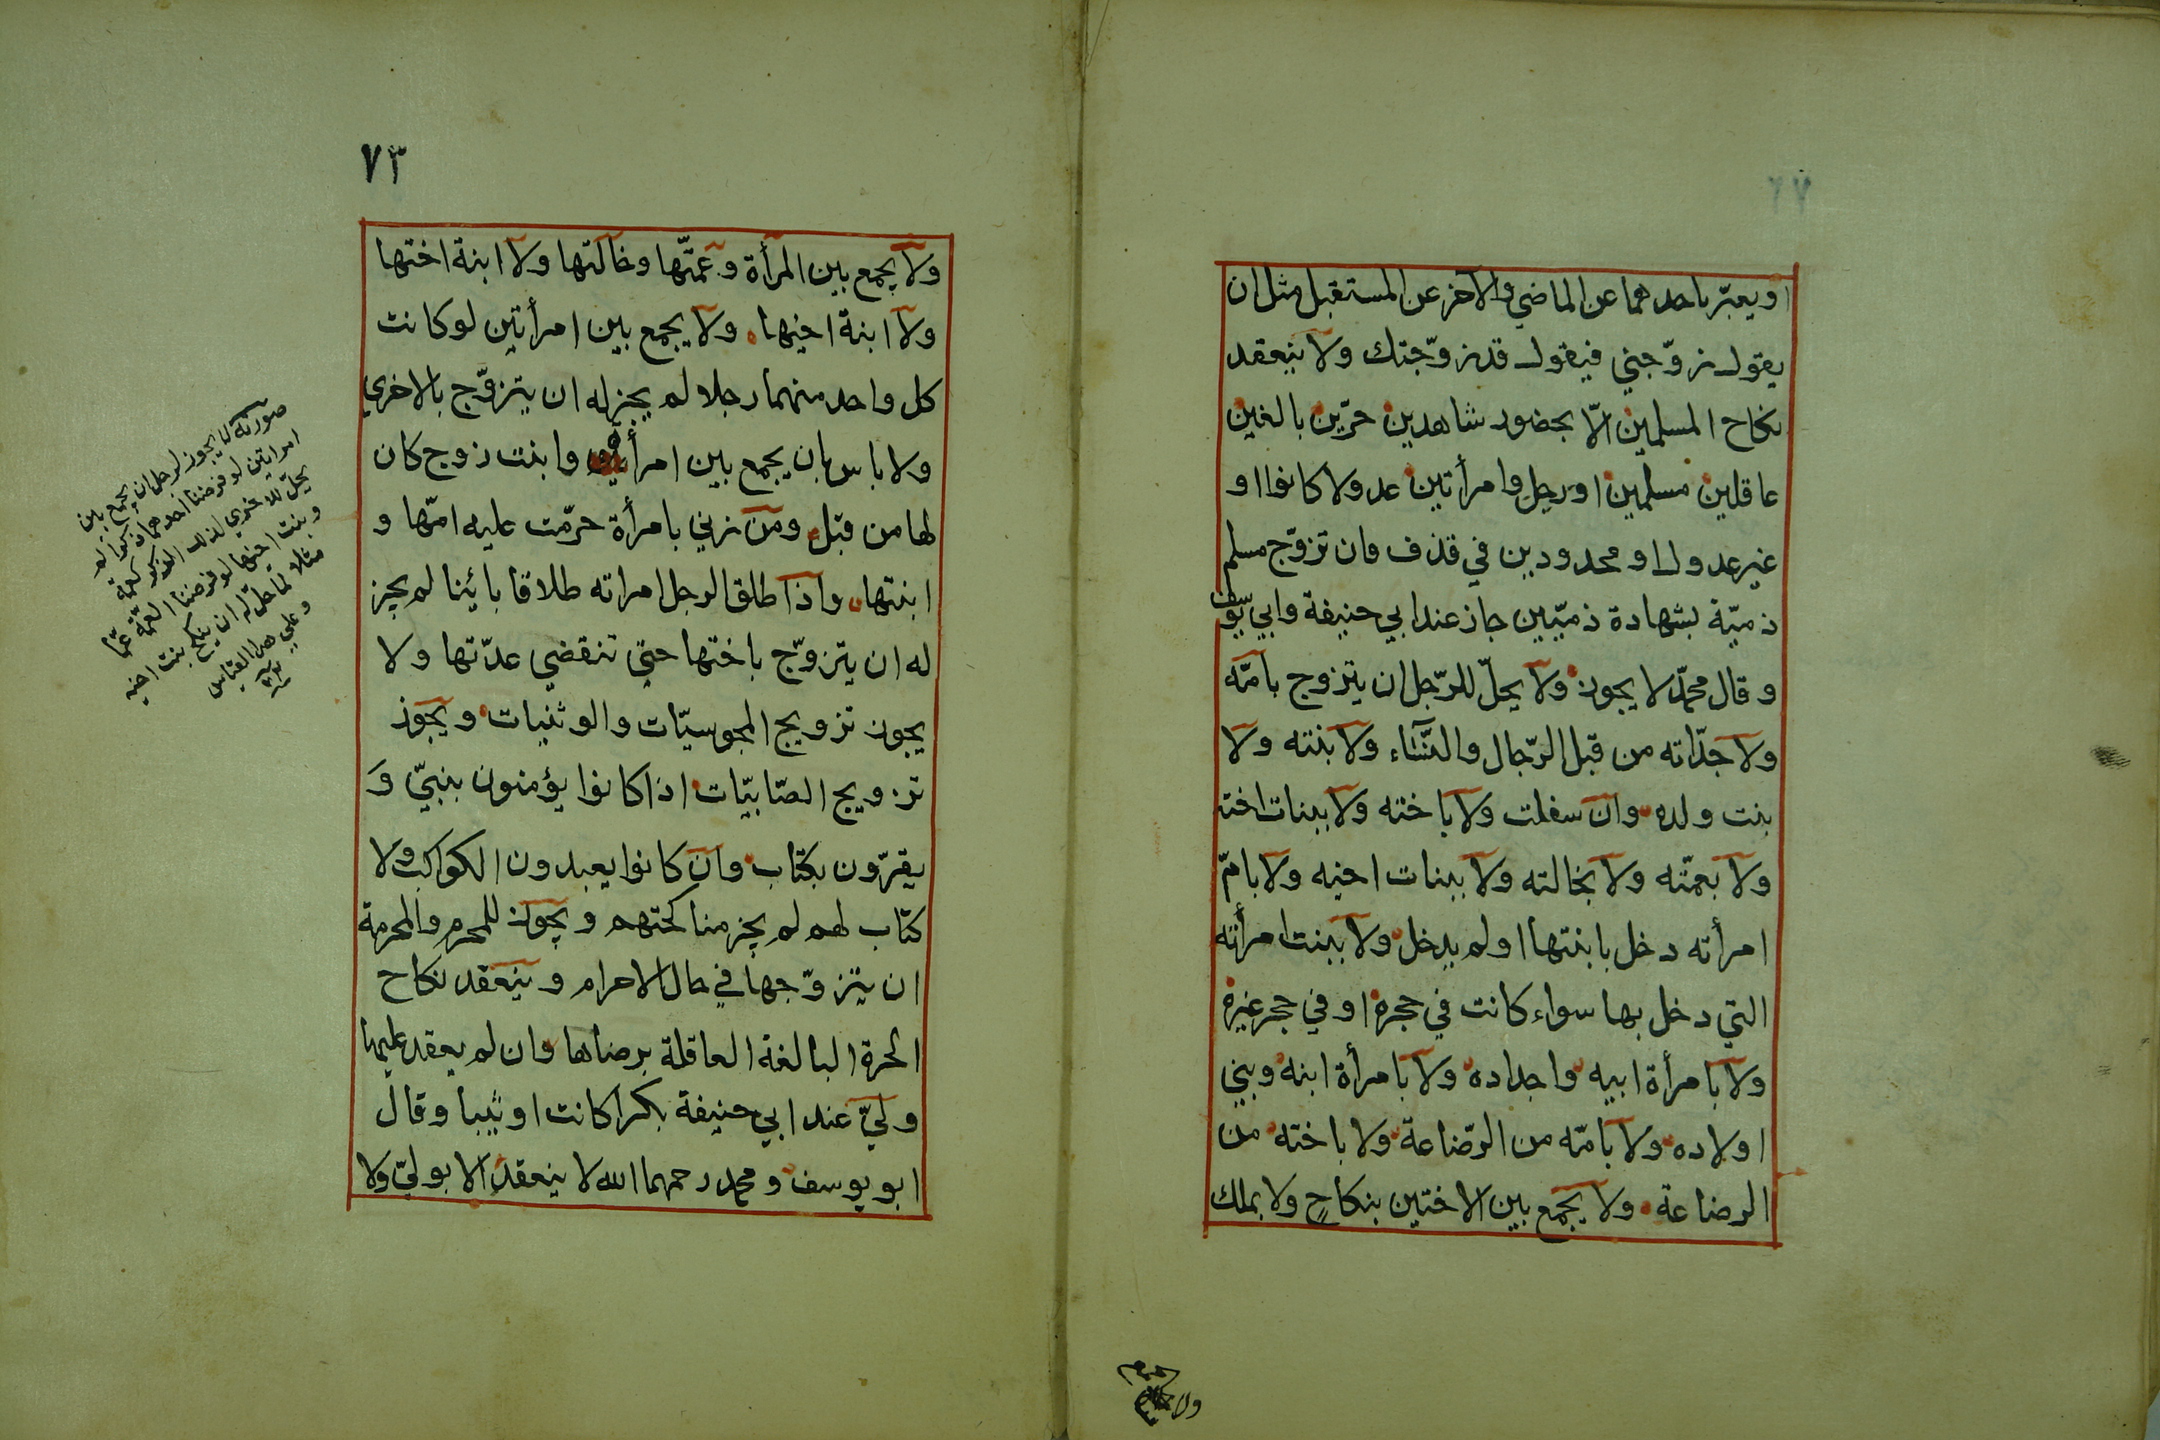 او يعبّر باحدهما عن الماضي والآخر عن المستقبل مثل ان
يقول زوّجني فيقول قد زوّجتك ولا ينعقد
نكاح المسلمين الّا بحضور شاهدين حرّين بالغين
عاقلين مسلمين او رجل وامرأتين عدولا كانوا او
غير عدول او محدودين في قذف فان تزوّج مسلم
ذميّة بشهادة ذميّين جاز عند ابي حنيفة وابي يوسف
وقال محمّد لا يجوز ولا يحلّ للرّجل ان يتزوج بامّه
ولا جدّاته من قبل الرّجال والنّساء ولا بنته ولا
بنت ولده وان سفلت ولا باخته ولا ببنات اخته
ولا بعمّته ولا بخالته ولا ببنات اخيه ولا بامّ
امرأته دخل بابنتها او لم يدخل ولا ببنت امرأته
التي دخل بها سواء كانت في حجره او في حجر غيره
ولا بامرأة ابيه واجداده ولا بامرأة ابنه وبني
اولاده ولا بامّه من الرّضاعة ولا باخته من
الرضاعة ولا يجمع بين الاختين بنكاحٍ ولا بملك
ولا يجمع
٧٣
ولا يجمع بين المرأة وعمّتها وخالتها ولا ابنة اختها
ولا ابنة اخيها ولا يجمع بين امرأتين لو كانت
كل واحد منهما رجلا لم يجز له ان يتزوّج بالاخري
ولا باس بان يجمع بين امرأة وابنت زوج كان
لها من قبل ومن زني بامرأة حرّمت عليه امّها و
ابنتها واذا طلق الرجل امراته طلاقا بائنا لم يجز
له ان يتزوّج باختها حتي تنقضي عدّتها ولا
يجوز تزويج المجوسيّات والوثنيات ويجوز
تزويج الصّابيّات اذا كانوا يؤمنون بنبيّ وَ
يقرّون بكتاب وان كانوا يعبدون الكواكب ولا
كتاب لهم لم يجز مناكحتهم ويجوز للمحرم والمحرمة
ان يتزوّجها في حال الاحرام وينعقد نكاح
الحرة البالغة العاقلة برضاها وان لم يعقد عليها
وليّ عند ابي حنيفة بكرا كانت او ثيبا وقال
ابو يوسف ومحمد رحمهما الله لا ينعقد الا بوليّ ولا
صورته لا يجوز لرجل ان يجمع بين
امراتين لو فرضنا احدهما ذكرا لم
يحلّ للاخري لذلك الذكر كعمة
وبنت اخيها لو فرضنا العمّة عمّا
مثلا لما حلّ له ان ينكح بنت اخيه
وعلي هذا القياس